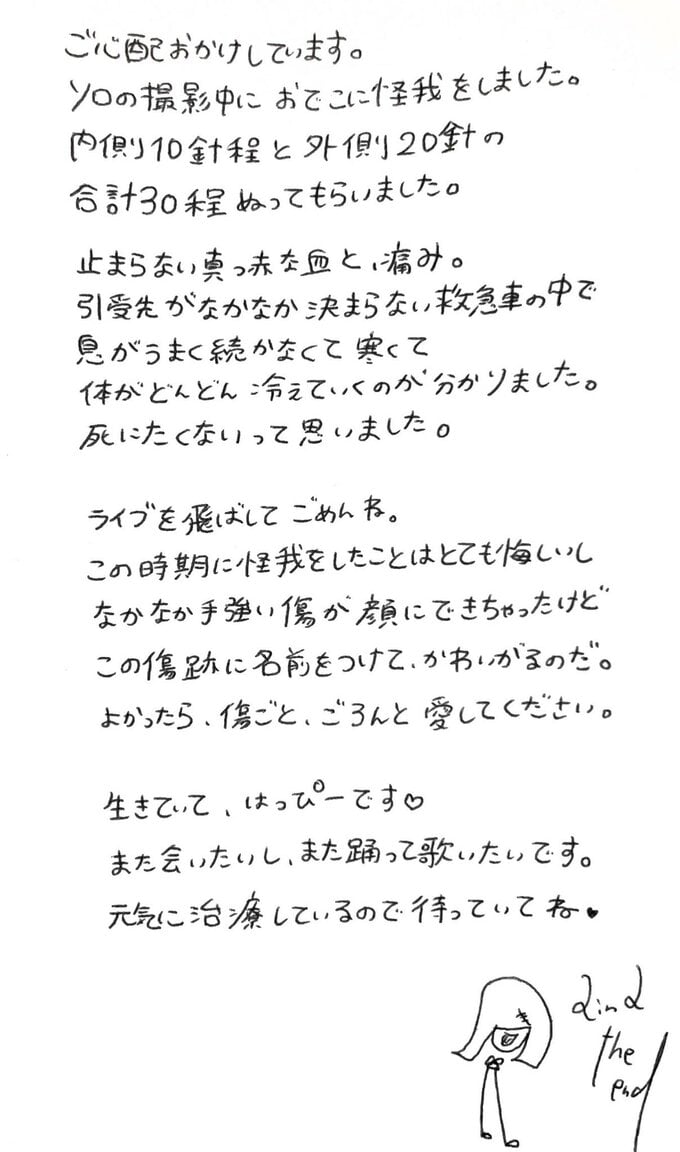 ご心配おかけしています。
ソロの撮影中に おでこに怪我をしました。
内側10針程と外側20針の
合計30程ぬってもらいました。
止まらない真っ赤な血と、痛み。
引受先がなかなか決まらない救急車の中で
息がうまく続かなくて寒くて
体がどんどん冷えていくのが分かりました。
死にたくないって思いました。
ライブを飛ばして ごめんね。
この時期に怪我をしたことはとても悔しいし
なかなか手強い傷が顔にできちゃったけど
この傷跡に名前をつけて、かわいがるのだ。
よかったら、傷ごと、ごろんと愛してください。
生きていて、はっぴーです♡
また会いたいし、また踊って歌いたいです。
元気に治療しているので待っていてね♥
the
end